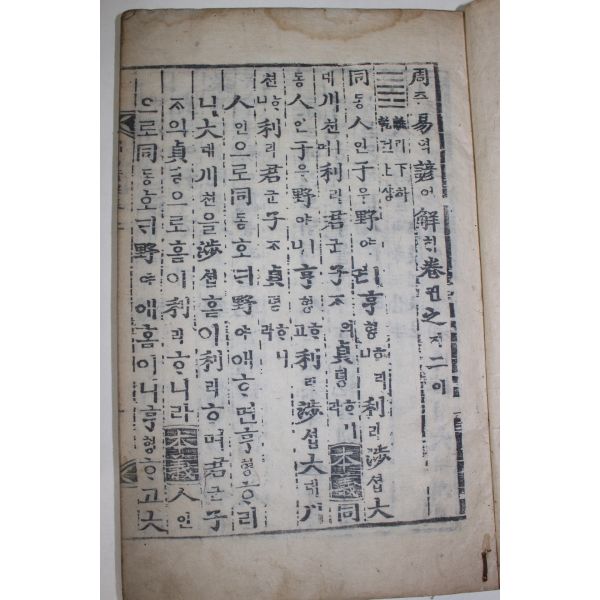 周쥬易역諺언解ᄒᆡ卷권之지二이
離리下하
乾건上샹
同동人인于우野야면亨형ᄒᆞ리利리涉셥大
대川쳔며利리君군子ᄌᆞ의貞뎡ᄒᆞ니라本義同
동人인于우野야ㅣ니亨형ᄒᆞ고利리涉셥大대川
쳔ᄒᆞ니利리君군子ᄌᆞ貞뎡ᄒᆞ니라
人인으로同동호ᄃᆡ野야애ᄒᆞ면亨형ᄒᆞ리
니大대川쳔을涉셥홈이利리ᄒᆞ며君군子
ᄌᆞ의貞뎡으로홈이利리ᄒᆞ니라本義人인
으로同동호ᄃᆡ野야애홈이니亨형ᄒᆞ고大